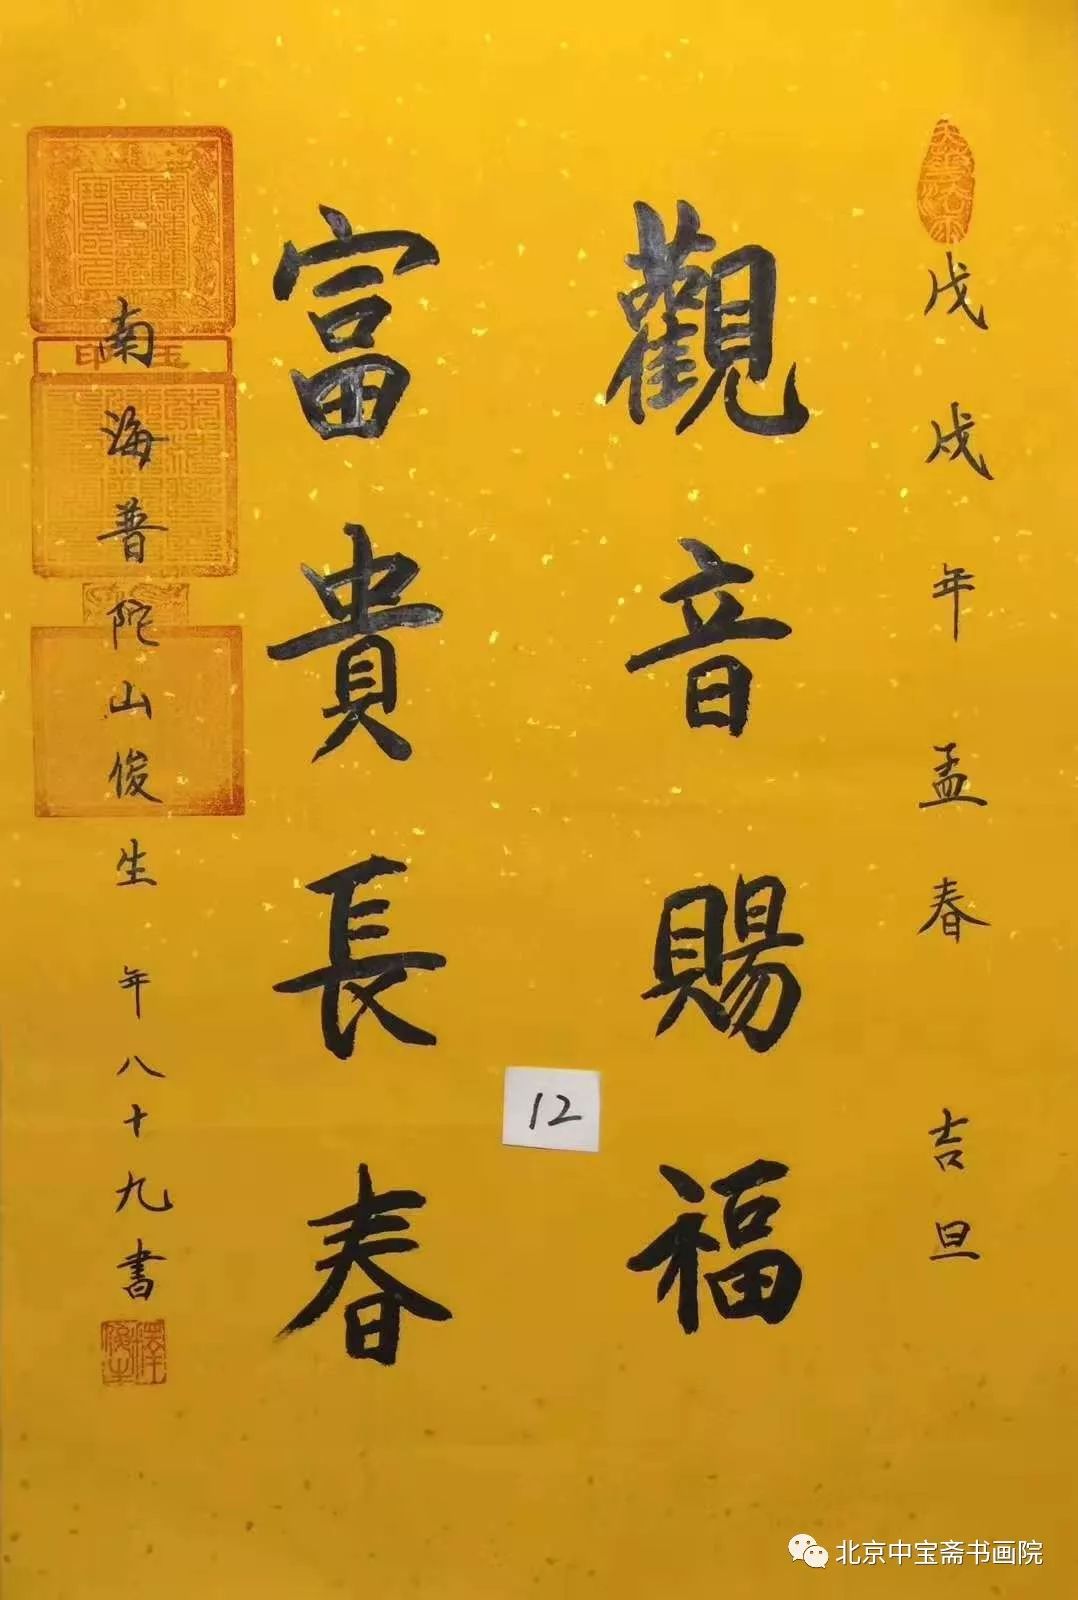 戊戌年孟春 吉旦
觀音賜福
富貴長春
南海普陀山俊生年八十九書
12
北京中宝斋书画院